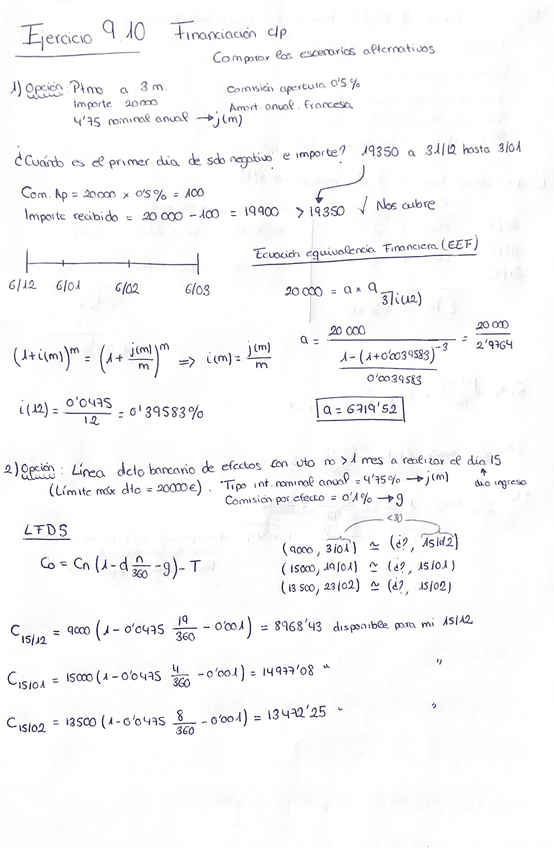 Ejercicio 9.10 Financiación c/p.
Comparar los escenarios alternativos
1) Opción: Ptmo a 3 m. Comisión apertura 0'5%
Importe 20000 Amort. anual. francesa
4'75 nominal anual → j(m)
¿Cuándo es el primer día de sdo negativo e importe? 19350 a 31/12 hasta 3/01
Com. Ap = 20000 × 0'5% = 100
Importe recibido = 20 000 - 100 = 19900 > 19350 √ Nos cubre
Ecuación equivalencia Financiera (EEF)
6/12 6/01 6/02 6/03
20 000 = a × a 3┐i(12)
a = 20 000 / ((1-(1+0'0039583)^-3) / 0'0039583) = 20 000 / 2'9764
(1+i(m))^m = (1 + j(m)/m)^m ⇒ i(m) = j(m)/m
i(12) = 0'0475/12 = 0'39583%
a = 6719'52
2) Opción: Línea dcto bancario de efectos con vto no > 1 mes a realizar el día 15
(Límite máx dto = 20000€). Tipo int. nominal anual = 4'75% → j(m) día ingreso
Comisión por efecto = 0'1% → g
<30
LFDS
Co = Cn (1 - d n/360 - g) - T
(9000, 3/01) ≃ (¿?, 15/12)
(15000, 19/01) ≃ (¿?, 15/01)
(13 500, 23/02) ≃ (¿?, 15/02)
C15/12 = 9000 (1 - 0'0475 19/360 - 0'001) = 8968'43 disponible para mi 15/12
C15/01 = 15000 (1 - 0'0475 4/360 - 0'001) = 14977'08 " "
C15/02 = 13500 (1 - 0'0475 8/360 - 0'001) = 13472'25 " "